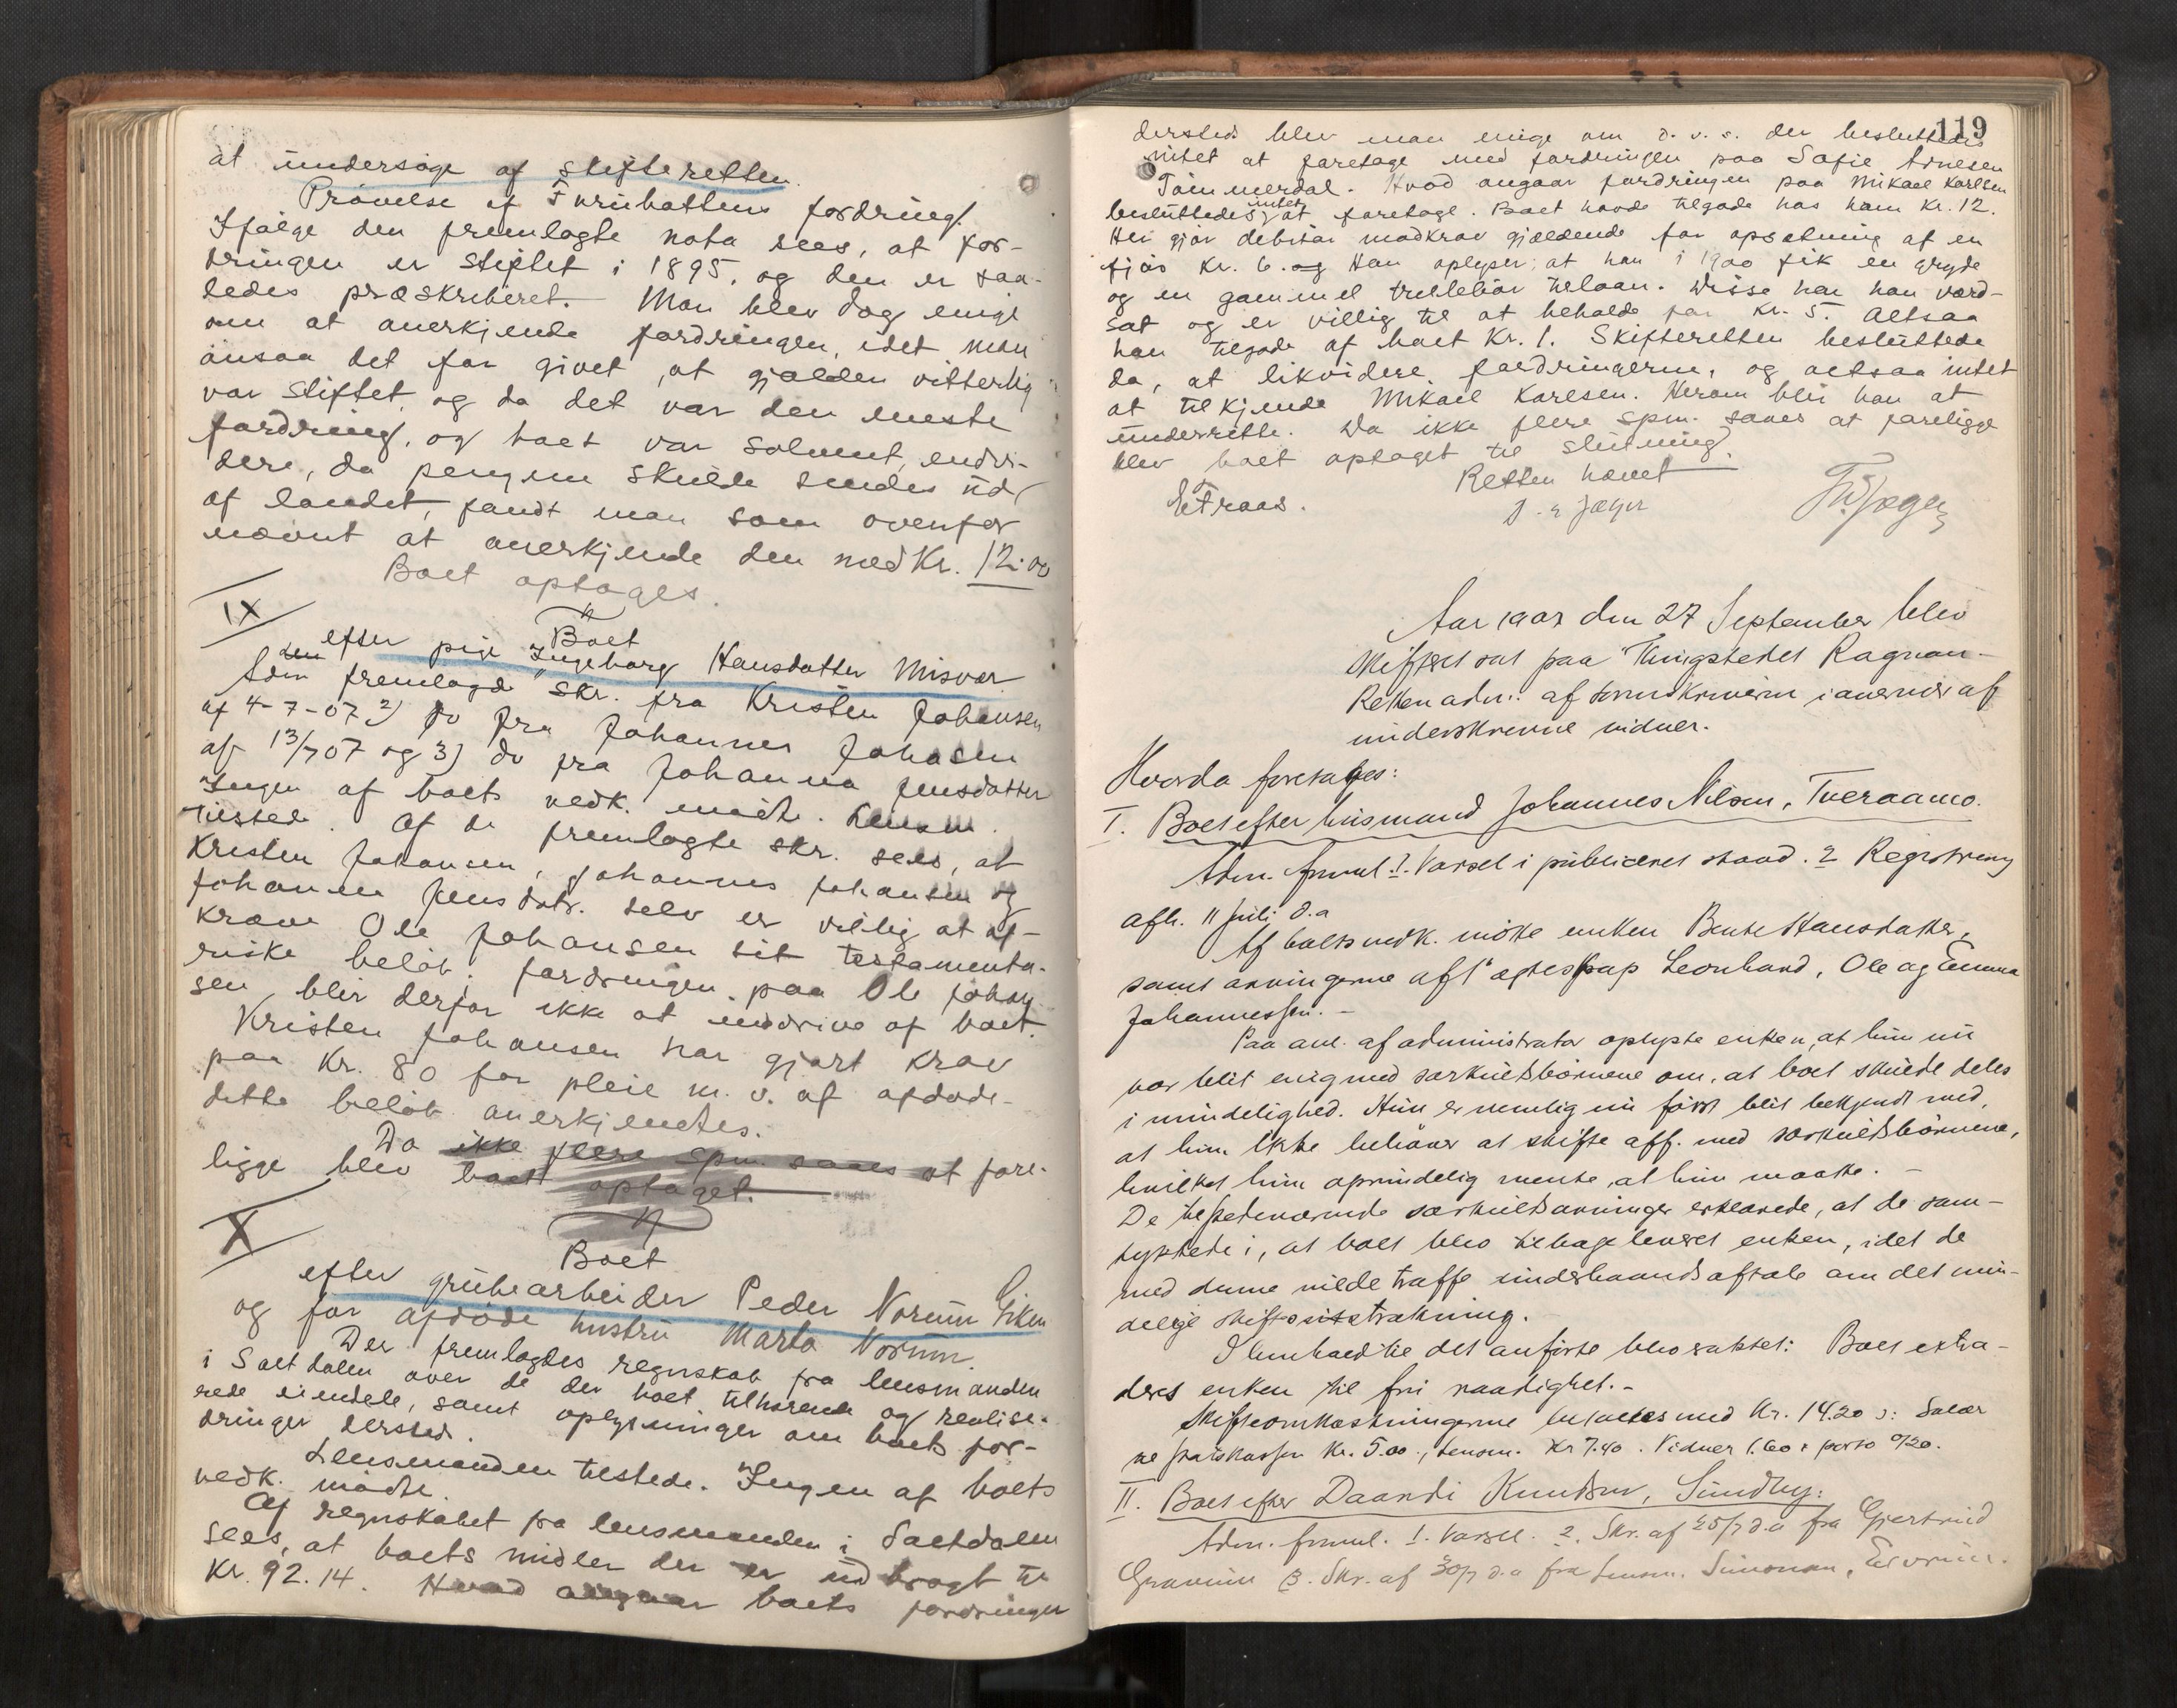 at undersøge af skifteretten.
Prøvelse af Furuhattens fordring.
Ifølge den fremlagte nota sees, at for-
dringen er stiftet i 1895, og den er saa-
ledes præskriberet. Man blev dog enige
om at anerkjende fordringen, idet man
ansaa det for givet, at gjælden vitterlig
var stiftet, og da det var den eneste
fordring, og boet var solvent, endvi-
dere, da pengene skulde sendes ud
af landet, fandt man som ovenfor
nævnt at anerkjende den med Kr. 12.00
Boet optages.
IX
Boet
efter pige Ingeborg Hansdatter Misvær
Adm fremlagde skr. fra Kristen Johansen
af 4-7-07 2) do fra Johannes Johansen
af 13/7 07 og 3) do fra Johanna Jensdatter
Ingen af boets vedk. mødte. Lensm.
tilstede. Af de fremlagte skr. sees, at
Kristen Johansen, Johannes Johansen og
Johanna Jensdatr. selv er villig at af-
kræve Ole Johansen sit testamenta-
riske beløb; fordringen paa Ole Johan-
sen blir derfor ikke at inddrive af boet.
Kristen Johansen har gjort krav
paa Kr. 80 for pleie m. v. af afdøde-
dette beløb anerkjendtes.
Da ikke flere spm. saaes at fore-
ligge blev boet optaget.
X
Boet
efter grubearbeider Peder Norum
og før afdøde hustru Marta Norum.
Der fremlagdes regnskab fra lensmanden
i Saltdalen over de der boet tilhørende og realise-
rede eiendele, samt oplysninger om boets for-
dringer dersteds.
Lensmanden tilstede. Ingen af boets
vedk. mødte.
Af regnskabet fra lensmanden i Saltdalen
sees, at boets midler der er udbragt til
Kr. 92.14. Hvad angaar boets fordringer
119
dersteds blev man enige om d. v. s. der besluttedes
intet at foretage med fordringen paa Sofie Arnesen
Tømmerdal. Hvad angaar fordringen paa Mikael Karlsen
besluttedes intet at foretage. Boet havde tilgode hos ham Kr. 12.
Her gjør debitor modkrav gjældende for opsætning af en
fjøs Kr. 6. og Han oplyser, at han i 1900 fik en gryde
og en gammel trillebør tillaan. Disse har han værd-
sat og er villig til at beholde for Kr. 5. Altsaa
han tilgode af boet Kr. 1. Skifteretten besluttede
da, at likvidere fordringerne, og altsaa intet
at tilkjende Mikael Karlsen. Herom blir han at
underrette. Da ikke flere spm. saaes at foreligge
blev boet optaget til slutning.
Retten hævet
Aar 1907 den 27 September blev
skifteret sat paa Tingstedet Rognan
Retten adm: af sorenskriveren i nærvær af
underskrevne vidner.
Hvorda foretages:
I. Boet efter husmand Johannes Nilsen, Tveraamo.
Adm. freml. 1. Varsel i publiceret stand. 2 Registrering
afh. 11 juli d.a
Af boets vedk. mødte enken Berte Hansdatter,
samt arvingerne af 1ste egteskap Leonhard, Ole og Emma
Johannessen. -
Paa anl. af administrator oplyste enken, at hun nu
var blit enig med særkuldsbørnene om, at boet skulde deles
i mindelighed. Hun er nemlig nu først blit bekjendt med,
at hun ikke behøver at skifte aff. med særkuldsbørnene,
hvilket hun oprindelig mente, at hun maatte. -
De tilstedeværende særkuldsarvinger erklærede, at de sam-
tykkede i, at boet blev tilbageleveret enken, idet de
med denne vilde træffe underhaandsaftale om det min-
delige skifte
I henhold til det anførte blev vaktet: Boet extra-
deres enken til fri raadighet. -
Skifteomkostningerne betaltes med Kr. 14.20 ɔ: Salær
til statskassen Kr. 5.00, lensm. Kr 7.40. Vidner 1.60 & porto 0/20.
II. Boet efter Daardi Knudsen, Sundby:
Adm. freml. 1. Varsel. 2. Skr. af 25/7 d.a fra Gjertrud
3. Skr. af 30/7 d.a fra lensm. Simonsen,